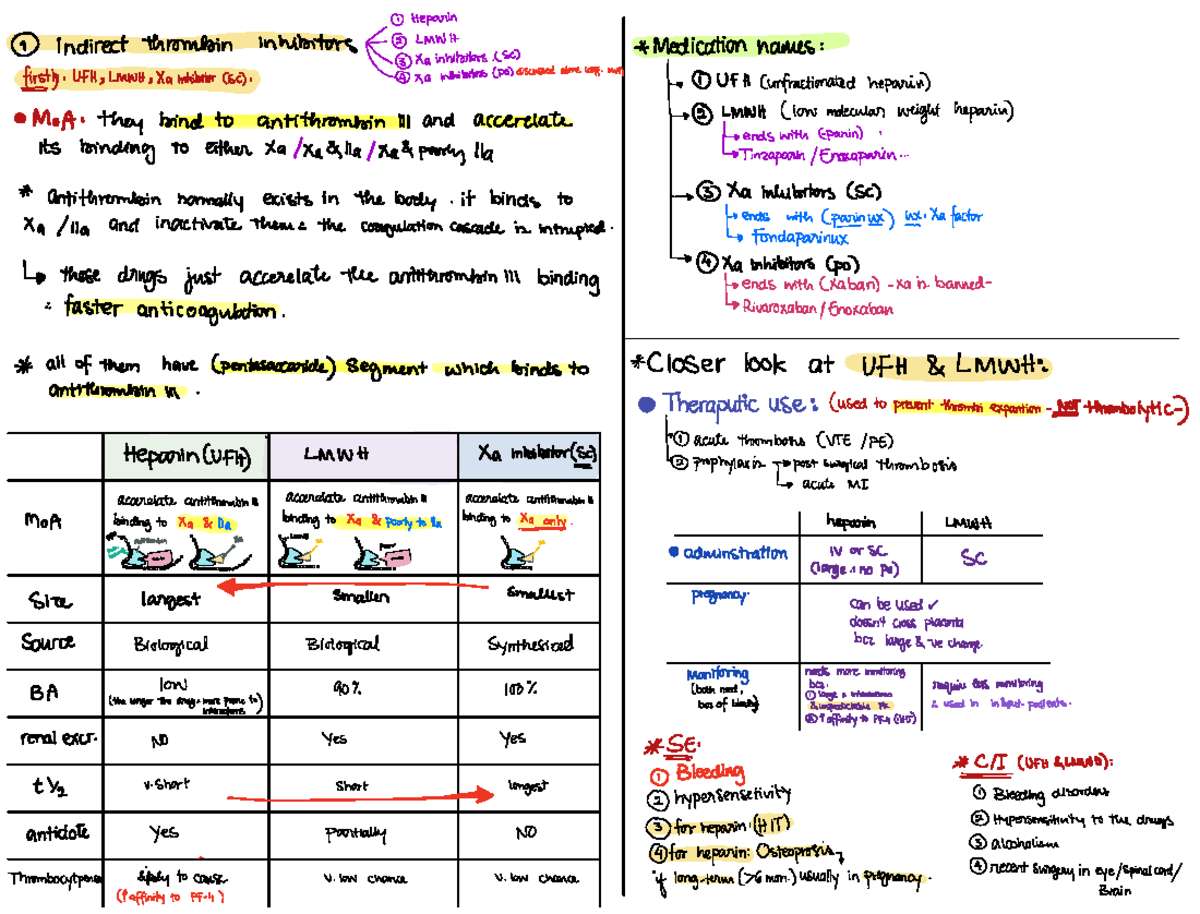 ① Indirect thrombin inhibitors
① Heparin
② LMWH
③ Xa inhibitors (SC)
④ Xa inhibitors (po) discussed alone
firstly. UFH, LMWH, Xa inhibitor (SC).
• MoA. they bind to antithrombin III and accerelate
its binding to either Xa / Xa & IIa / Xa & poorly IIa
* Antithrombin normally exists in the body. it binds to
Xa / IIa and inactivate them ∴ the coagulation cascade is intrupted.
↳ those drugs just accerelate the antithrombin III binding
∴ faster anticoagulation.
* all of them have (pentasaccaride) segment which binds to
antithrombin III.
Heparin (UFH) LMWH Xa inhibitor (SC)
MoA
accerelate antithrombin III binding to Xa & IIa
accerelate antithrombin III binding to Xa & poorly to IIa
accerelate antithrombin III binding to Xa only.
Size largest Smaller Smallest
Source Biological Biological Synthesized
BA low 90% 100%
(the larger the drug → more prone to interactions)
renal excr. NO Yes Yes
t ½ v.short Short longest
antidote Yes Partially NO
Thrombocytpenia likely to cause v. low chance v. low chance
(↑affinity to PF-4)
* Medication names:
① UFH (unfractionated heparin)
② LMWH (low molecular weight heparin)
ends with (parin)
Tinzaparin / Enoxaparin...
③ Xa inhibitors (SC)
ends with (parinux) ux. Xa factor
Fondaparinux
④ Xa inhibitors (po)
ends with (Xaban) - xa is banned -
Rivaroxaban / Enoxaban
* Closer look at UFH & LMWH:
• Theraputic use: (used to prevent thrombi expantion - NOT thrombolytic -)
① acute thrombosis (VTE / PE)
② prophylaxis → post surgical thrombosis
↳ acute MI
heparin LMWH
• adminstration IV or SC SC
(large ∴ no po)
pregnancy.
can be used ✓
doesn't cross placenta
bcz large & -ve charge
Monitoring
(both need, bcz of bleeding)
needs more monitoring
bcz.
① large → interactions
& unpredictable PK
② ↑affinity to PF-4 (HIT)
require less monitoring
∴ used in
* SE:
① Bleeding
② hypersensetivity
③ for heparin. (HIT)
④ for heparin: Osteoprosis
if long-term (>6 mon.) usually in pregnancy.
* C/I (UFH & LMWH):
① Bleeding disorders
② Hypersensitivity to the drugs
③ alcoholism
④ recent surgery in eye / spinal cord /
Brain